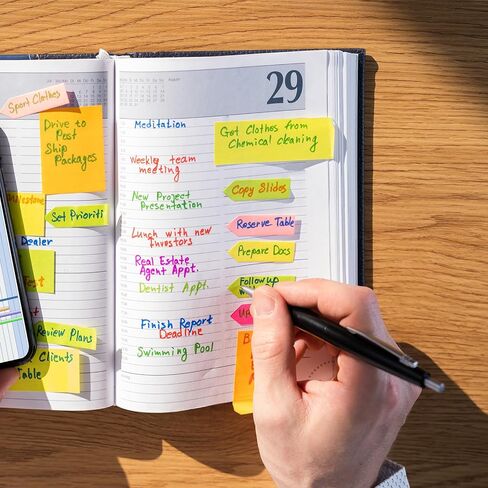 Sport Clothes
Drive to
Post
Ship
Packages
Set Prioriti
Dealer
Review Plans
Clients
Table
August
29
Meditation
Weekly team
meeting
New Project
Presentation
Lunch with new
Investors
Real Estate
Agent Appt.
Dentist Appt.
Finish Report
Deadline
Swimming Pool
Get Clothes from
Chemical cleaning
Copy Slides
Reserve Table
Prepare Docs
Follow up